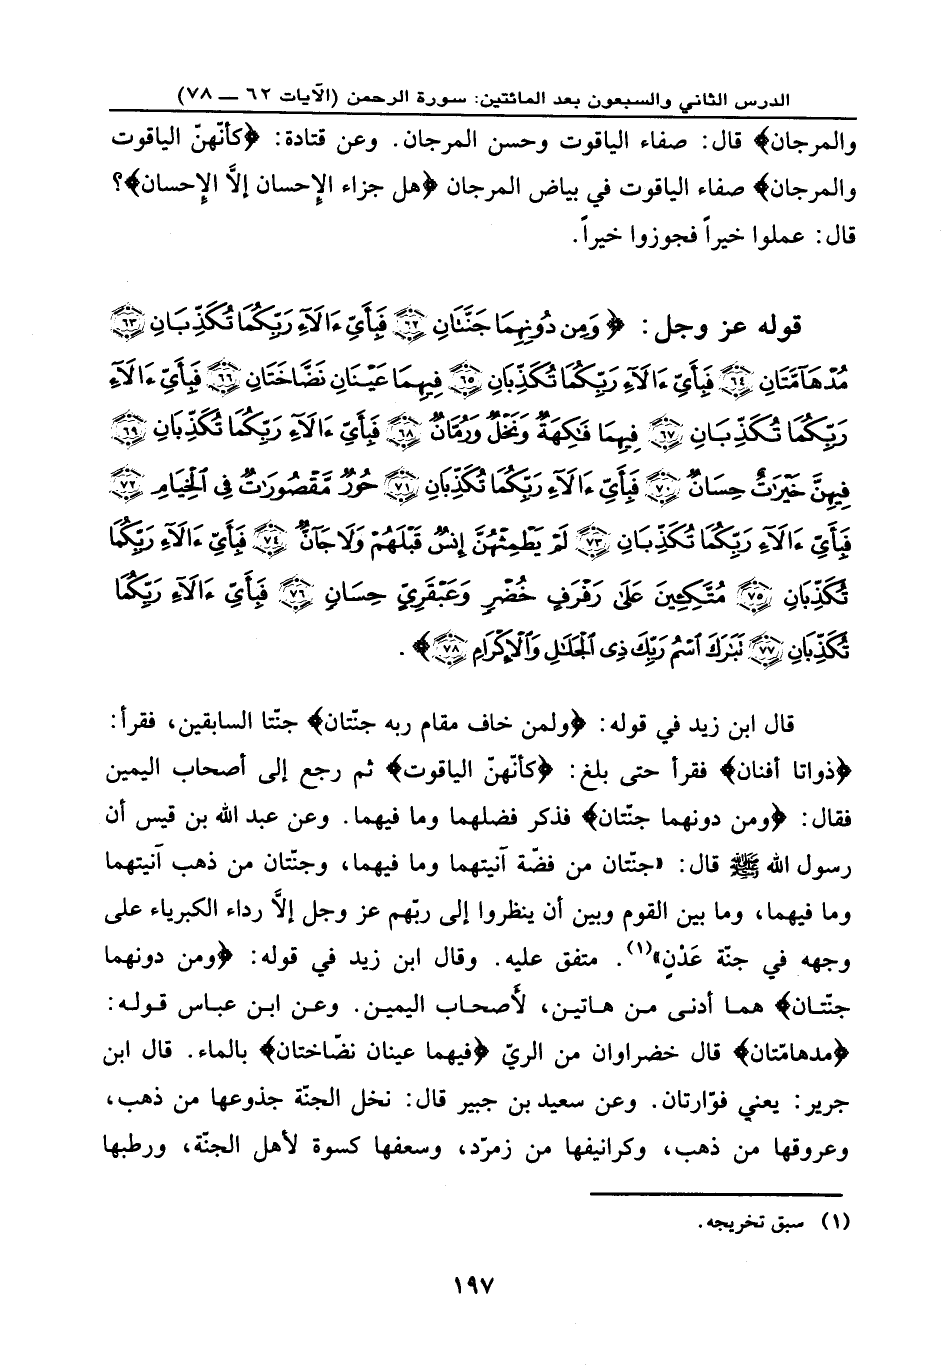 الدرس الثاني والسبعون بعد المائتين: سورة الرحمن (الآيات ٦٢ — ٧٨)
والمرجان﴾ قال: صفاء الياقوت وحسن المرجان. وعن قتادة: ﴿كأنّهنّ الياقوت
والمرجان﴾ صفاء الياقوت في بياض المرجان ﴿هل جزاء الإحسان إلاَّ الإحسان﴾؟
قال: عملوا خيراً فجوزوا خيراً.
قوله عز وجل: ﴿وَمِن دُونِهِمَا جَنَّتَانِ ٦٢ فَبِأَيِّ ءَالَآءِ رَبِّكُمَا تُكَذِّبَانِ ٦٣
مُدْهَآمَّتَانِ ٦٤ فَبِأَيِّ ءَالَآءِ رَبِّكُمَا تُكَذِّبَانِ ٦٥ فِيهِمَا عَيْنَانِ نَضَّاخَتَانِ ٦٦ فَبِأَيِّ ءَالَآءِ
رَبِّكُمَا تُكَذِّبَانِ ٦٧ فِيهِمَا فَٰكِهَةٌ وَنَخْلٌ وَرُمَّانٌ ٦٨ فَبِأَيِّ ءَالَآءِ رَبِّكُمَا تُكَذِّبَانِ ٦٩
فِيهِنَّ خَيْرَٰتٌ حِسَانٌ ٧٠ فَبِأَيِّ ءَالَآءِ رَبِّكُمَا تُكَذِّبَانِ ٧١ حُورٌ مَّقْصُورَٰتٌ فِي ٱلْخِيَامِ ٧٢
فَبِأَيِّ ءَالَآءِ رَبِّكُمَا تُكَذِّبَانِ ٧٣ لَمْ يَطْمِثْهُنَّ إِنسٌ قَبْلَهُمْ وَلَا جَآنٌّ ٧٤ فَبِأَيِّ ءَالَآءِ رَبِّكُمَا
تُكَذِّبَانِ ٧٥ مُتَّكِـِٔينَ عَلَىٰ رَفْرَفٍ خُضْرٍ وَعَبْقَرِيٍّ حِسَانٍ ٧٦ فَبِأَيِّ ءَالَآءِ رَبِّكُمَا
تُكَذِّبَانِ ٧٧ تَبَٰرَكَ ٱسْمُ رَبِّكَ ذِي ٱلْجَلَٰلِ وَٱلْإِكْرَامِ ٧٨﴾.
قال ابن زيد في قوله: ﴿ولمن خاف مقام ربه جنّتان﴾ جنّتا السابقين، فقرأ:
﴿ذواتا أفنان﴾ فقرأ حتى بلغ: ﴿كأنّهنّ الياقوت﴾ ثم رجع إلى أصحاب اليمين
فقال: ﴿ومن دونهما جنّتان﴾ فذكر فضلهما وما فيهما. وعن عبد الله بن قيس أن
رسول الله ﷺ قال: «جنّتان من فضّة آنيتهما وما فيهما، وجنّتان من ذهب آنيتهما
وما فيهما، وما بين القوم وبين أن ينظروا إلى ربّهم عز وجل إلاَّ رداء الكبرياء على
وجهه في جنّة عَدْنٍ»(١). متفق عليه. وقال ابن زيد في قوله: ﴿ومن دونهما
جنّتـان﴾ همـا أدنـى مـن هـاتيـن، لأصحـاب اليميـن. وعـن ابـن عبـاس قـولـه:
﴿مدهامّتان﴾ قال خضراوان من الريّ ﴿فيهما عينان نضّاختان﴾ بالماء. قال ابن
جرير: يعني فوّارتان. وعن سعيد بن جبير قال: نخل الجنّة جذوعها من ذهب،
وعروقها من ذهب، وكرانيفها من زمرّد، وسعفها كسوة لأهل الجنّة، ورطبها
(١) سبق تخريجه.
١٩٧